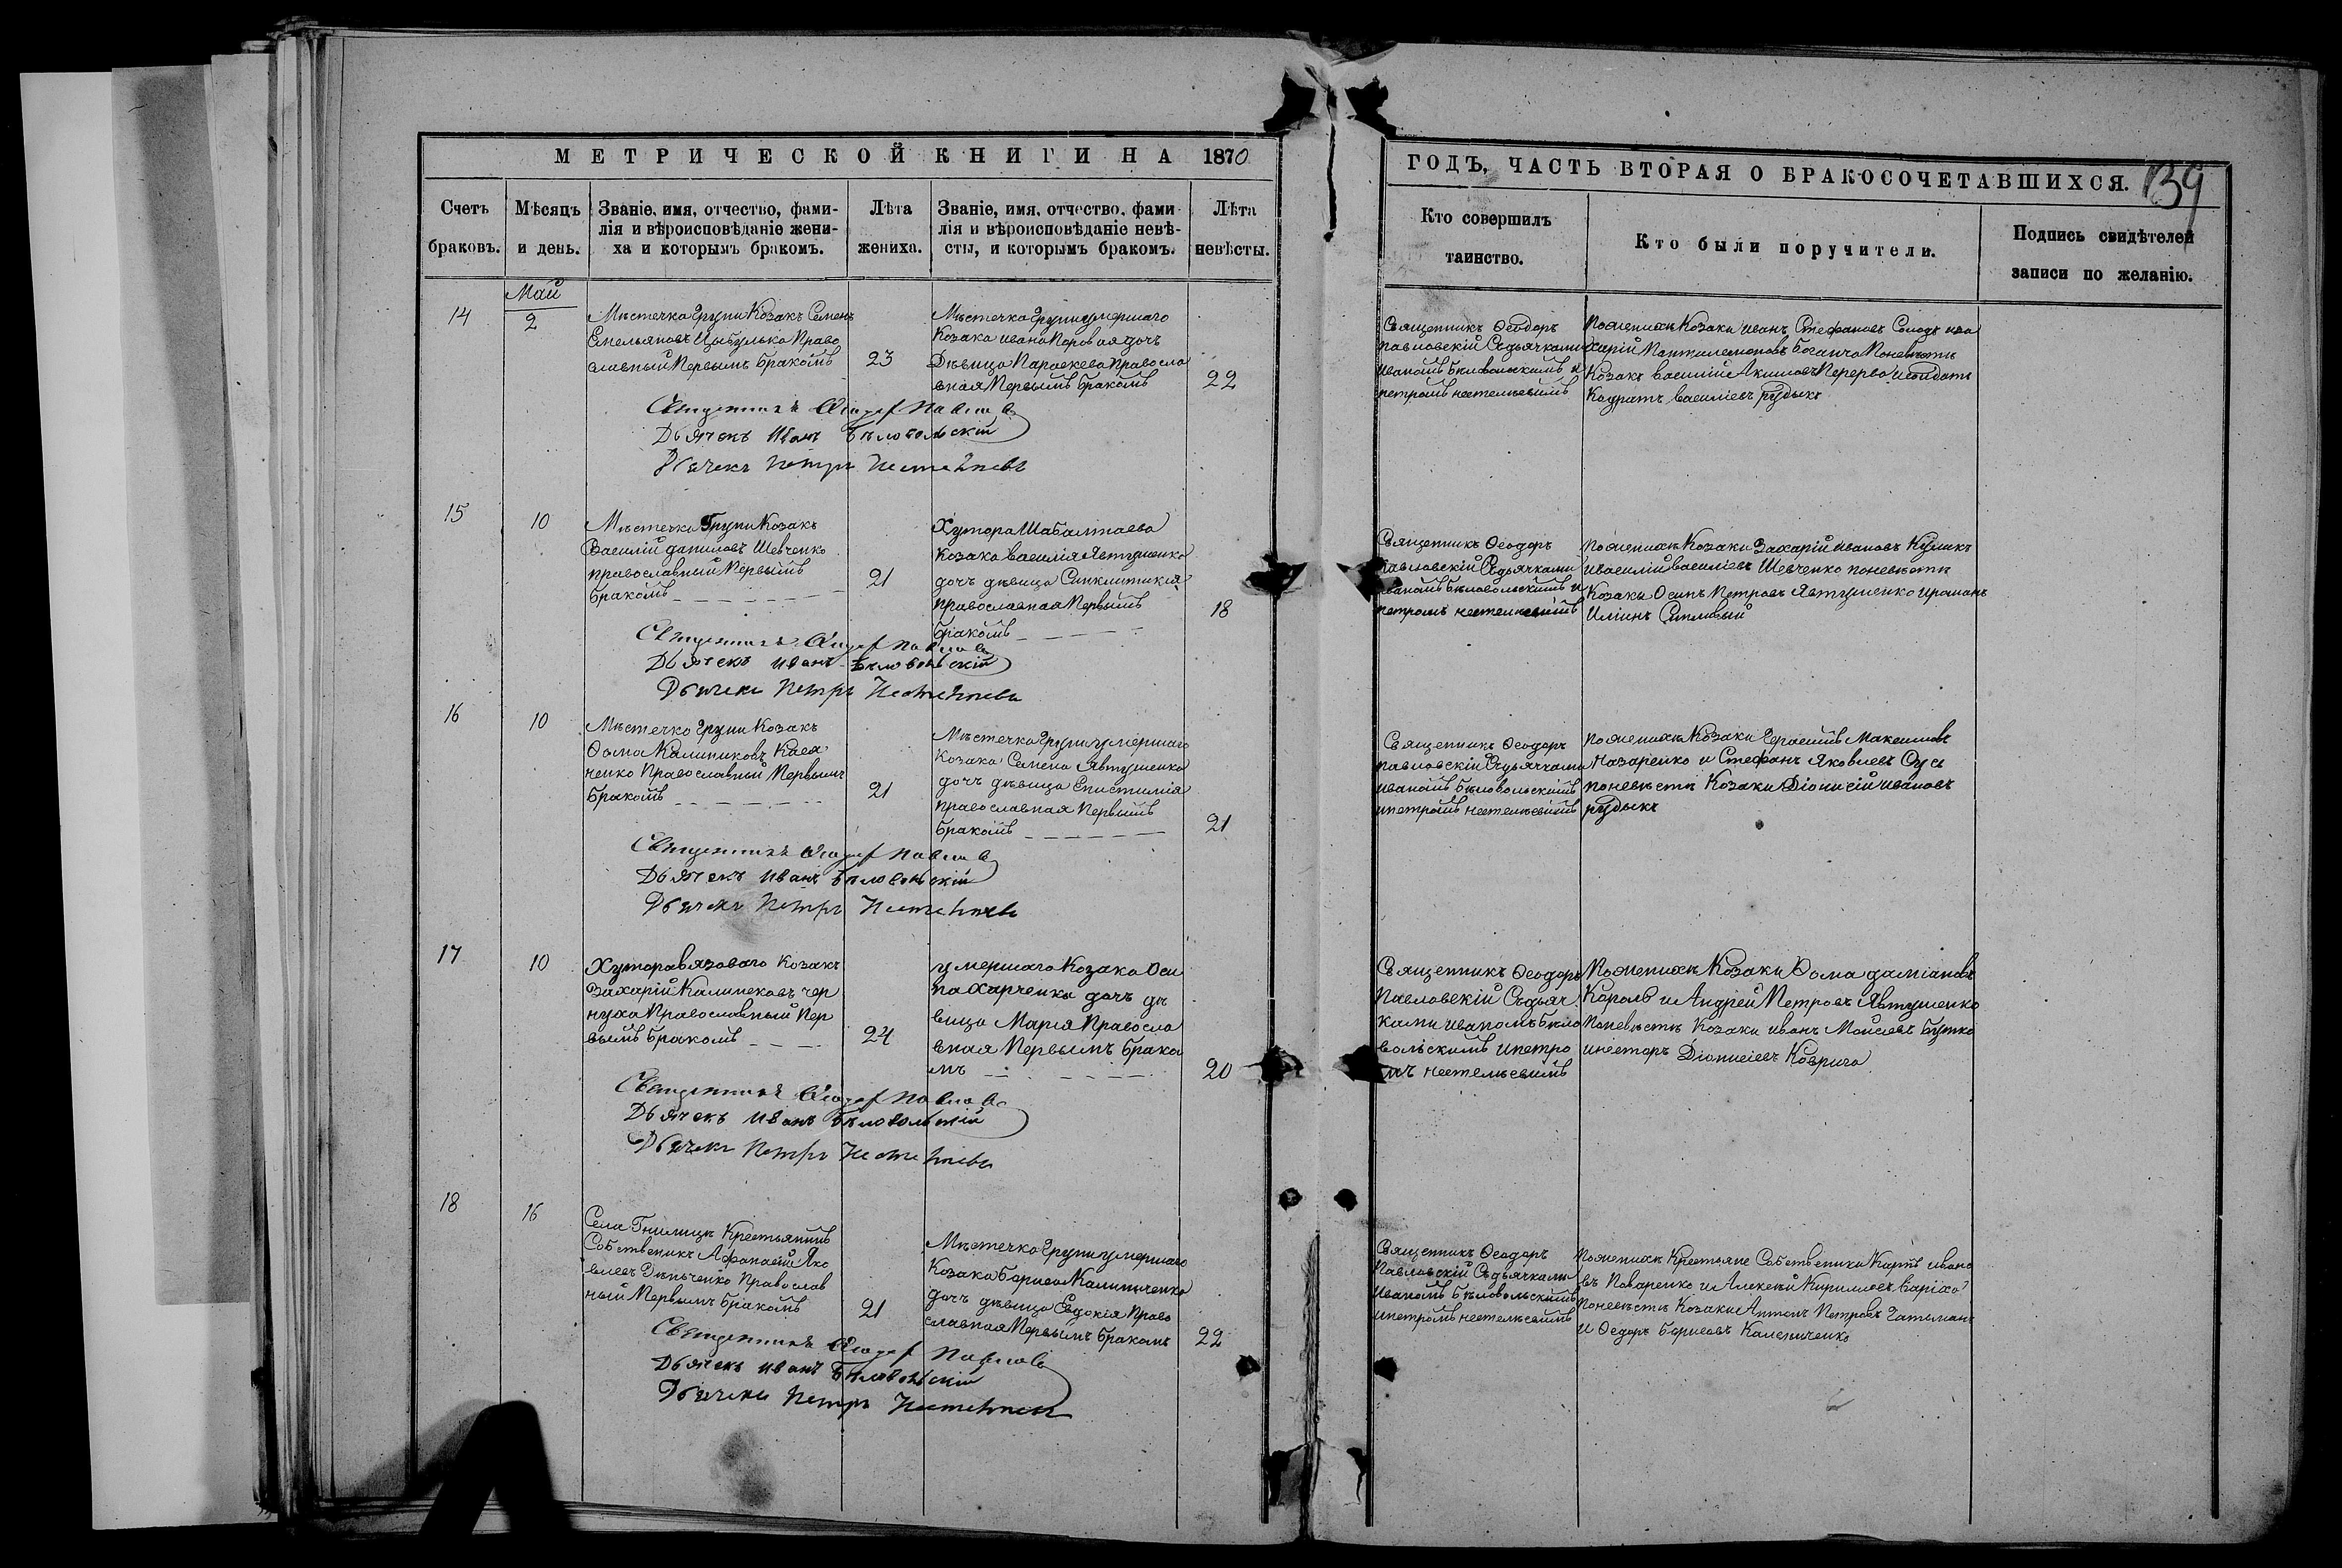 МЕТРИЧЕСКОЙ КНИГИ НА 1870
Счетъ браковъ.
Мѣсяцъ и день.
Званіе, имя, отчество, фами-
лія и вѣроисповѣданіе жени-
ха и которымъ бракомъ.
Лѣта жениха.
Званіе, имя, отчество, фами
лія и вѣроисповѣданіе невѣ-
сты, и которымъ бракомъ.
Лѣта невѣсты.
ГОДЪ, ЧАСТЬ ВТОРАЯ О БРАКОСОЧЕТАВШИХСЯ.
139
Кто совершилъ
таинство.
Кто были поручители.
Подпись свидѣтелей
записи по желанію.
14
Май
2
Мѣстечка Груни Козакъ Семенъ
Емельяновъ Цыбулька Право
славный Первымъ бракомъ
23
Мѣстечка Груни умершаго
Козака Ивана дочь
Дѣвица Параскева Правосла
вная Первымъ бракомъ
22
Священникъ Ѳеодоръ
Павловскій Съ дьячками
Иваномъ Бѣловольскимъ и
Петромъ
По женихѣ Козаки Иванъ Стефановъ
харій Пантилемоновъ По невѣстѣ
Козакъ Василій Акимовъ Перерва
Кодратъ Василіевъ Рудыкъ
Священникъ Ѳеодоръ
Дьячекъ Иванъ Бѣловольскій
Дьячекъ Петръ
15
10
Мѣстечка Груни Козакъ
Василій Даниловъ Шевченко
православный Первымъ
бракомъ
21
Хутора Шабалтаева
Козака Василія Явтушенка
дочь дѣвица Синклитикія
православная Первымъ
бракомъ
18
Священникъ Ѳеодоръ
Павловскій Съ дьячками
Иваномъ Бѣловольскимъ и
Петромъ
По женихѣ Козаки Захарій Ивановъ Куликъ
и Василій Василіевъ Шевченко по невѣстѣ
Козаки Осипъ Петровъ Явтушенко и Романъ
Иліинъ
Священникъ Ѳеодоръ
Дьячекъ Иванъ Бѣловольскій
Дьячекъ Петръ
16
10
Мѣстечка Груни Козакъ
Ѳома Калиниковъ Касья
ненко Православный Первымъ
бракомъ
21
Мѣстечка Груни умершаго
Козака Семена Явтушенка
дочь дѣвица Епистимія
православная Первымъ
бракомъ
21
Священникъ Ѳеодоръ
Павловскій Съ дьячками
Иваномъ Бѣловольскимъ
и Петромъ
По женихѣ Козаки Герасимъ Максимовъ
Назаренко и Стефанъ Яковлевъ
по невѣстѣ Козаки Діонисій Ивановъ
Рудыкъ
Священникъ Ѳеодоръ
Дьячекъ Иванъ Бѣловольскій
Дьячекъ Петръ
17
10
Хутора Вязоваго Козакъ
Захарій Калинековъ Чер
нуха Православный Пер
вымъ бракомъ
24
умершаго Козака Оси
па Харченка дочь дѣ
вица Марія Правосла
вная Первымъ брако
мъ
20
Священникъ Ѳеодоръ
Павловскій Съ дьяч
ками Иваномъ Бѣло
вольскимъ и Петро
мъ
По женихѣ Козаки Ѳома Даміановъ
Король и Андрей Петровъ Явтушенко
По невѣстѣ Козаки Иванъ Моисеевъ Бутко
и Несторъ Діонисіевъ Коврига
Священникъ Ѳеодоръ
Дьячекъ Иванъ Бѣловольскій
Дьячекъ Петръ
18
16
Села Гнилицъ Крестьянинъ
Собственикъ Афанасій Яко
влевъ Зѣньченко Православ
ный Первымъ бракомъ
21
Мѣстечка Груни умершаго
Козака Бориса Калиниченка
дочь дѣвица Евдокія Право
славная Первымъ бракомъ
22
Священникъ Ѳеодоръ
Павловскій Съ дьячками
Иваномъ Бѣловольскимъ
и Петромъ
По женихѣ Крестьяне Собственики Карпъ Ивано
въ Поваренко и Алексѣй Кириловъ
По невѣстѣ Козаки Антонъ Петровъ
И Ѳедоръ Борисовъ Калениченко
Священникъ Ѳеодоръ
Дьячекъ Иванъ Бѣловольскій
Дьячекъ Петръ